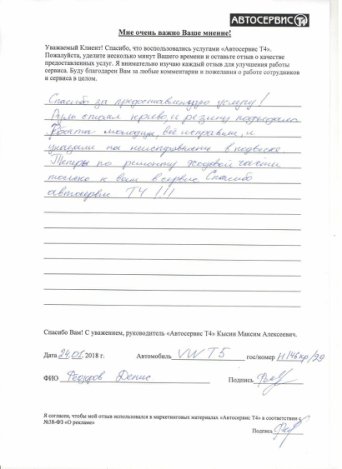 АВТОСЕРВИС Т4
Мне очень важно Ваше мнение!
Уважаемый Клиент! Спасибо, что воспользовались услугами «Автосервис Т4».
Пожалуйста, уделите несколько минут Вашего времени и оставьте отзыв о качестве
предоставленных услуг. Я внимательно изучаю каждый отзыв для улучшения работы
сервиса. Буду благодарен Вам за любые комментарии и пожелания о работе сотрудников
и сервиса в целом.
Спасибо за предоставленную услугу!
Руль стоял криво и резину подъедало
Ребята молодцы, всё исправили, и
указали на неисправности в подвеске.
Теперь по ремонту ходовой части
только к вам в сервис. Спасибо
автосервис Т4 !!!
Спасибо Вам! С уважением, руководитель «Автосервис Т4» Кысин Максим Алексеевич.
Дата 24.05.2018 г. Автомобиль VW T5 гос/номер Н146кр/29
ФИО Федоров Денис Подпись
Я согласен, чтобы мой отзыв использовался в маркетинговых материалах «Автосервис Т4» в соответствии с
№38-ФЗ «О рекламе»
Подпись